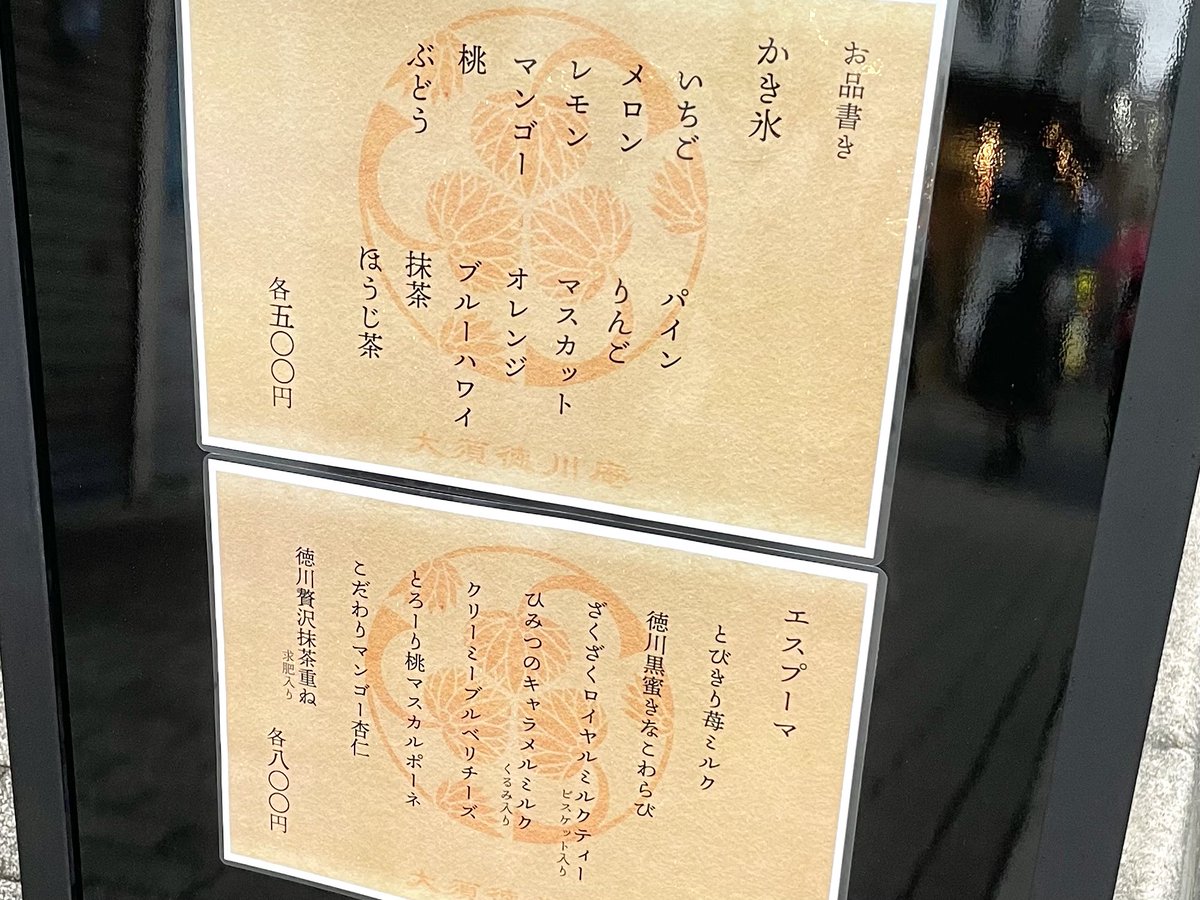 お品書き
かき氷
いちご
メロン
レモン
マンゴー
桃
ぶどう
パイン
りんご
マスカット
オレンジ
ブルーハワイ
抹茶
ほうじ茶
各五〇〇円
大須徳川庵
エスプーマ
とびきり苺ミルク
徳川黒蜜きなこわらび
ざくざくロイヤルミルクティー
ビスケット入り
ひみつのキャラメルミルク
くるみ入り
クリーミーブルベリチーズ
とろーり桃マスカルポーネ
こだわりマンゴー杏仁
徳川贅沢抹茶重ね
求肥入り
各八〇〇円
大須徳